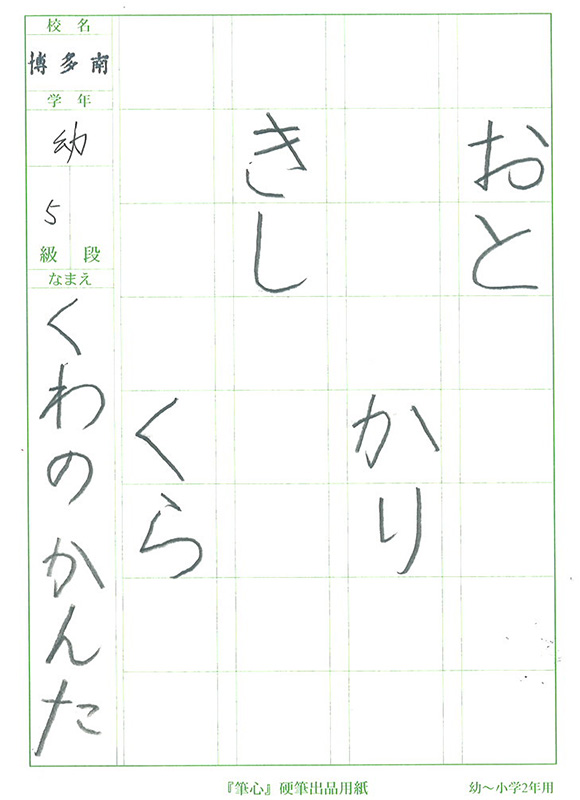 おと
かり
きし
くら
校名
博多南
学年
幼
5
級 段
なまえ
くわの かんた
『筆心』硬筆出品用紙
幼～小学2年用